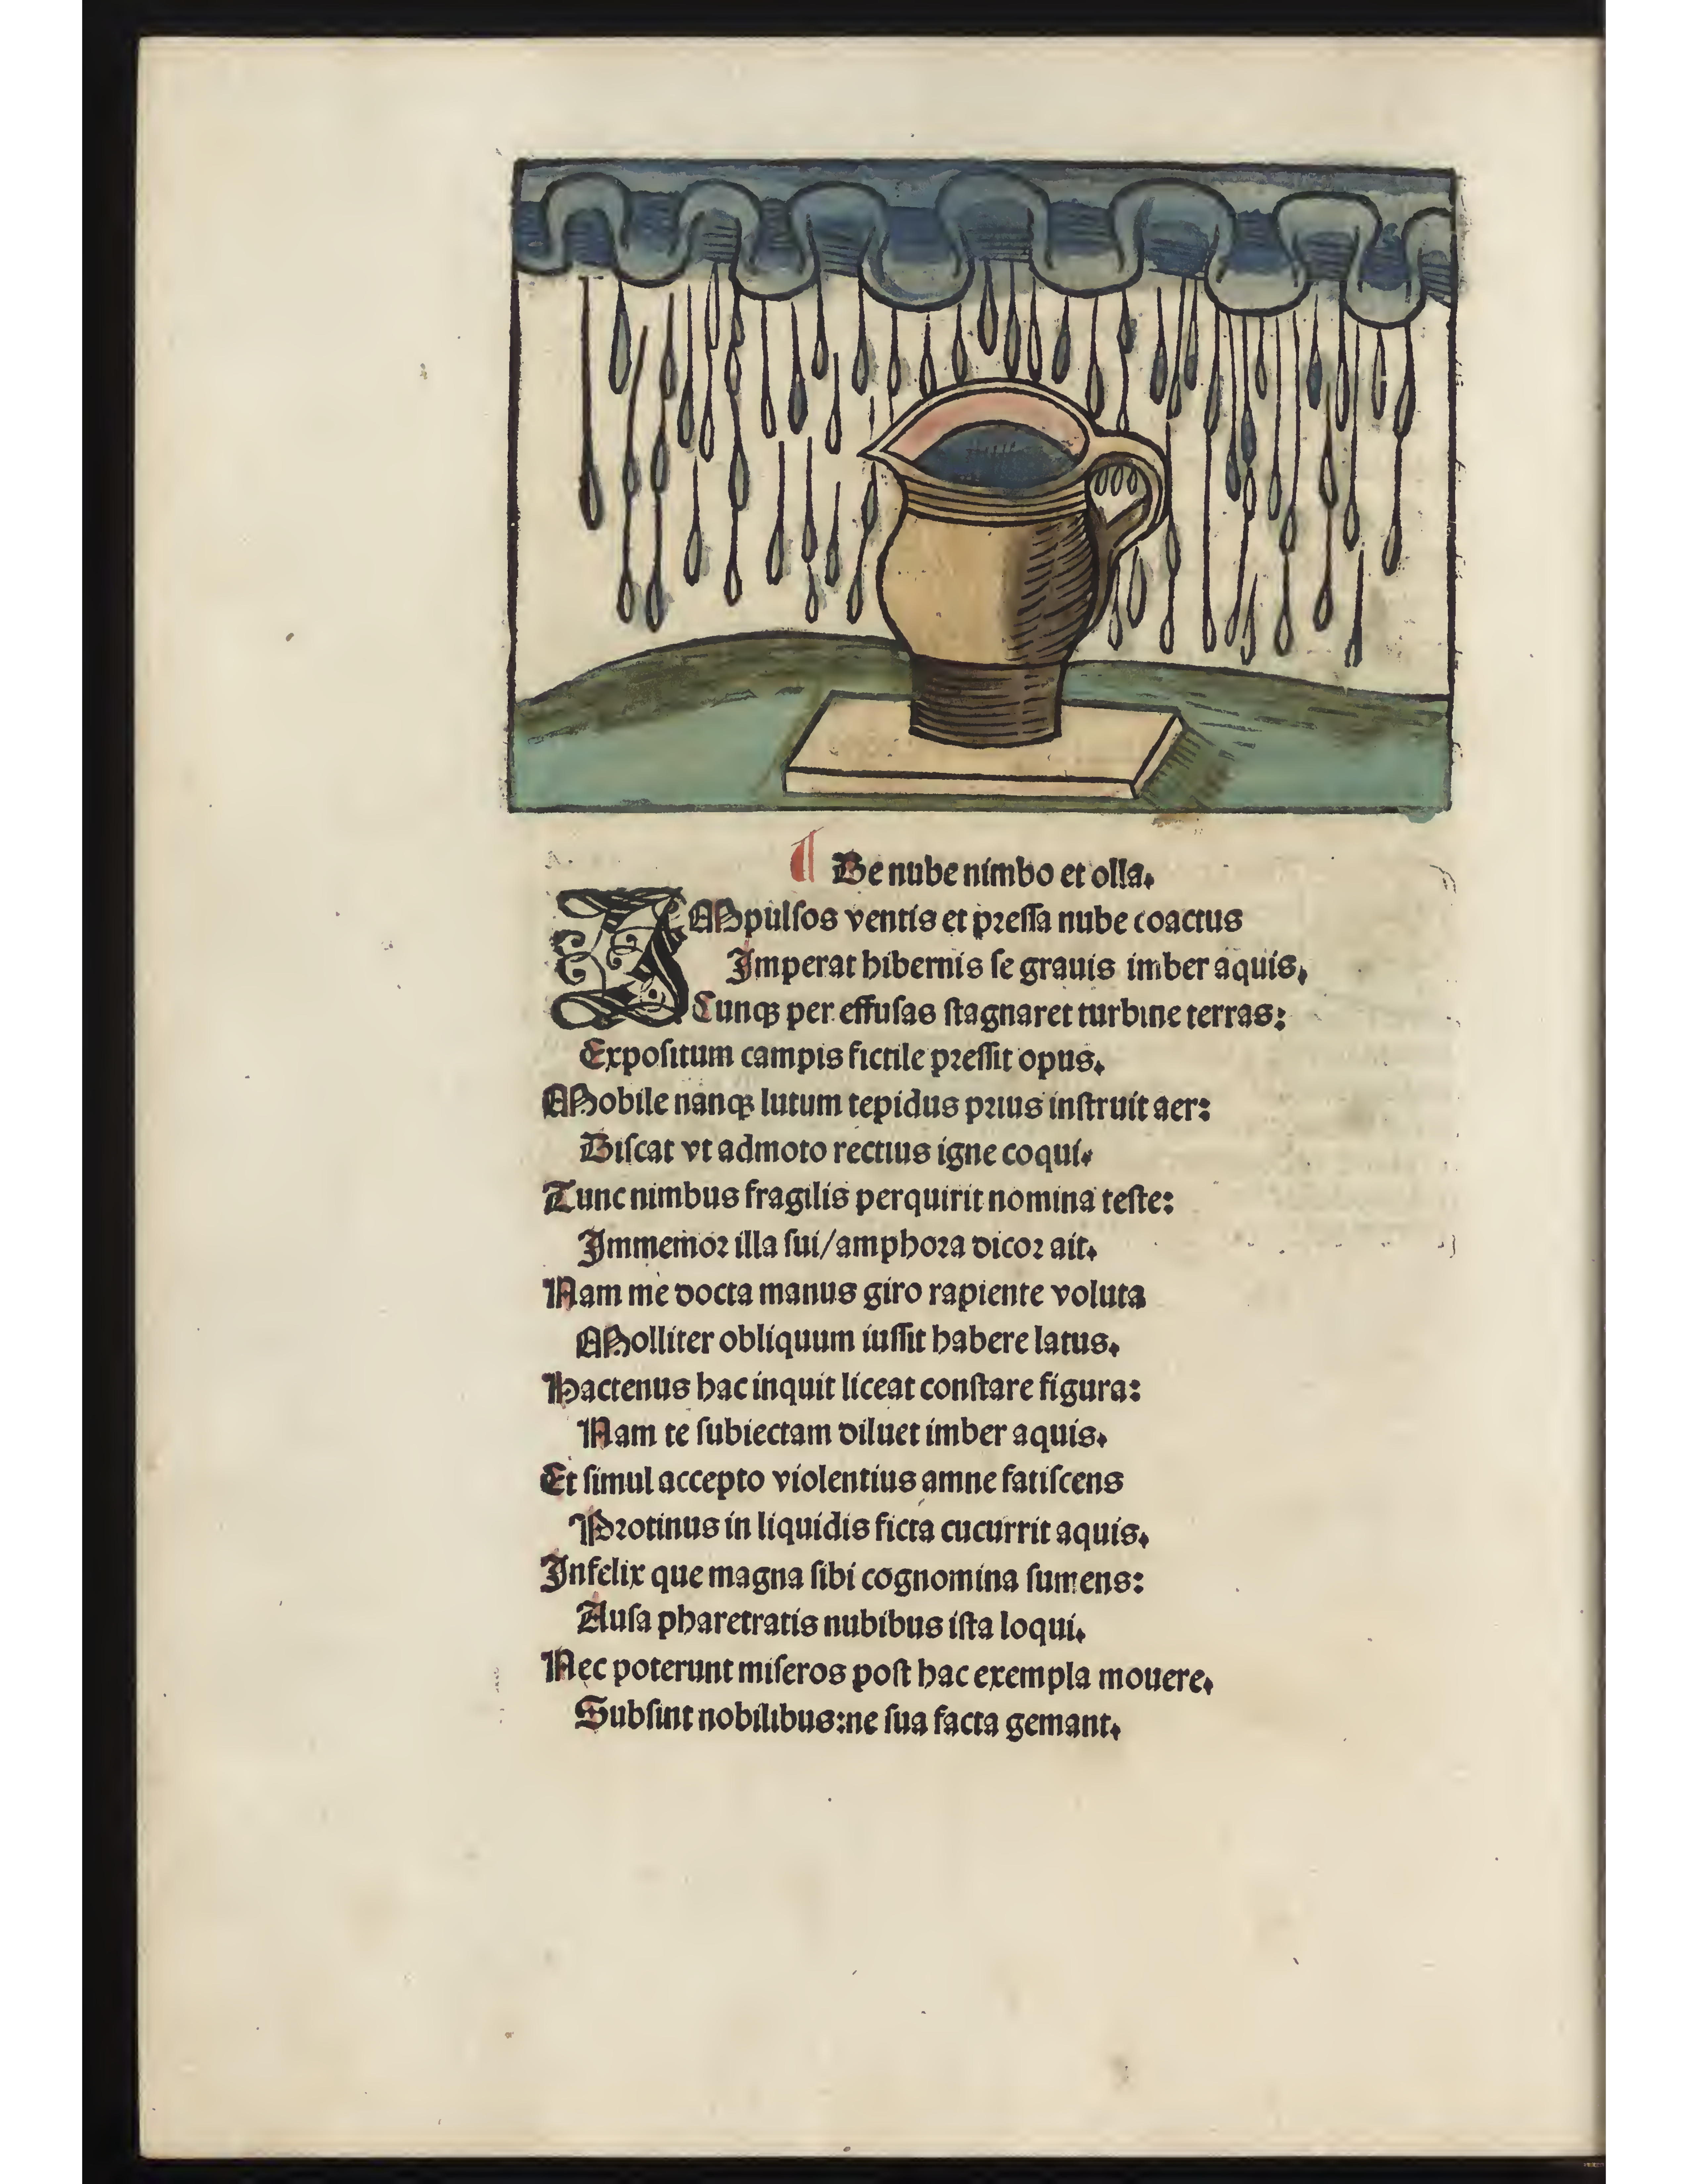 ¶ De nube nimbo et olla.
IMpulsos ventis et pressa nube coactus
Imperat hibernis se grauis imber aquis,
Cunqꝫ per effusas stagnaret turbine terras:
Expositum campis fictile pressit opus.
Mobile nanqꝫ lutum tepidus prius instruit aer:
Discat vt admoto rectius igne coqui.
Tunc nimbus fragilis perquirit nomina teste:
Immemor illa sui/amphora dicor ait.
Nam me docta manus giro rapiente voluta
Molliter obliquum iussit habere latus.
Hactenus hac inquit liceat constare figura:
Nam te subiectam diluet imber aquis.
Et simul accepto violentius amne fatiscens
Protinus in liquidis ficta cucurrit aquis.
Infelix que magna sibi cognomina sumens:
Ausa pharetratis nubibus ista loqui.
Nec poterunt miseros post hac exempla mouere.
Subsint nobilibus:ne sua facta gemant.